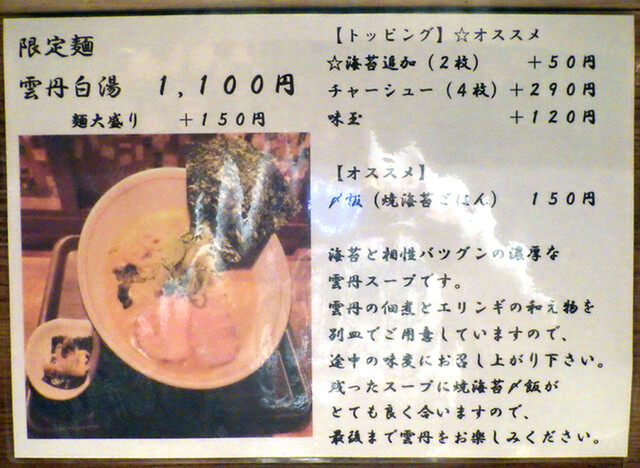 限定麺
雲丹白湯 1,100円
麺大盛り +150円
【トッピング】☆オススメ
☆海苔追加(2枚) +50円
チャーシュー(4枚)+290円
味玉 +120円
【オススメ】
〆飯(焼海苔ごはん) 150円
海苔と相性バツグンの濃厚な
雲丹スープです。
雲丹の佃煮とエリンギの和え物を
別皿でご用意していますので、
途中の味変にお召し上がり下さい。
残ったスープに焼海苔〆飯が
とても良く合いますので、
最後まで雲丹をお楽しみください。